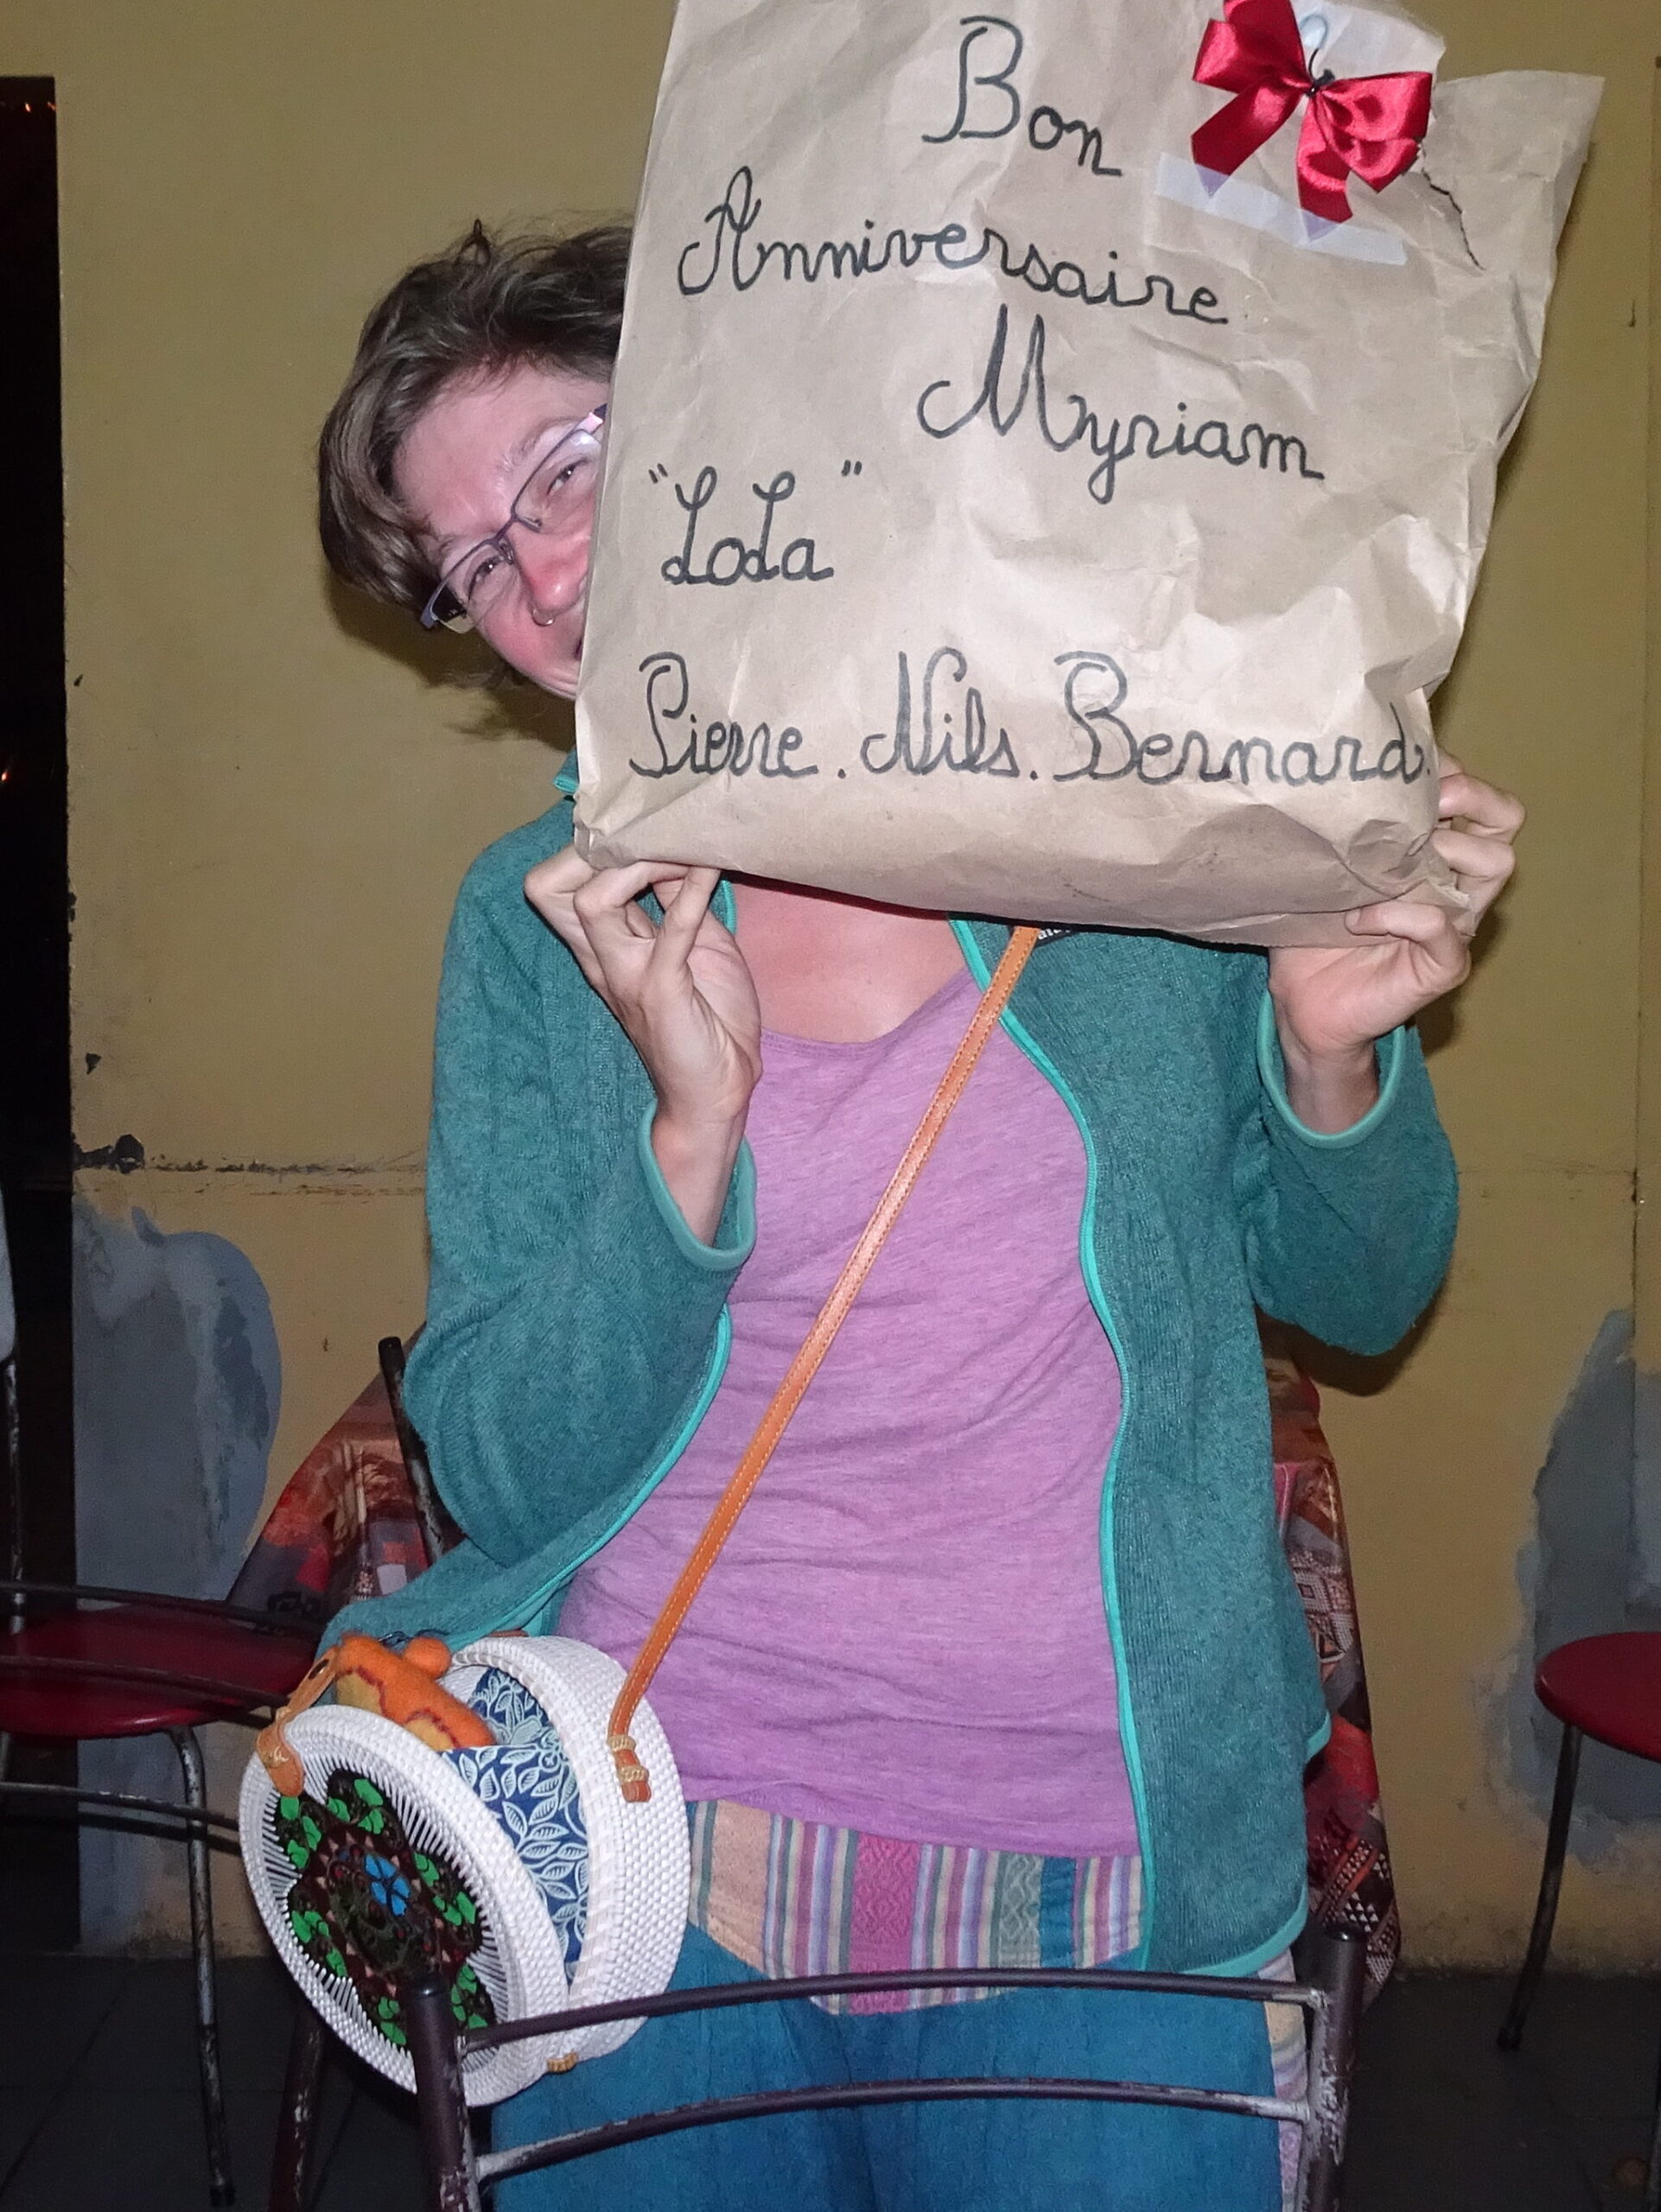 Bon
Anniversaire
Myriam
"LoLa"
Pierre. Nils. Bernard.